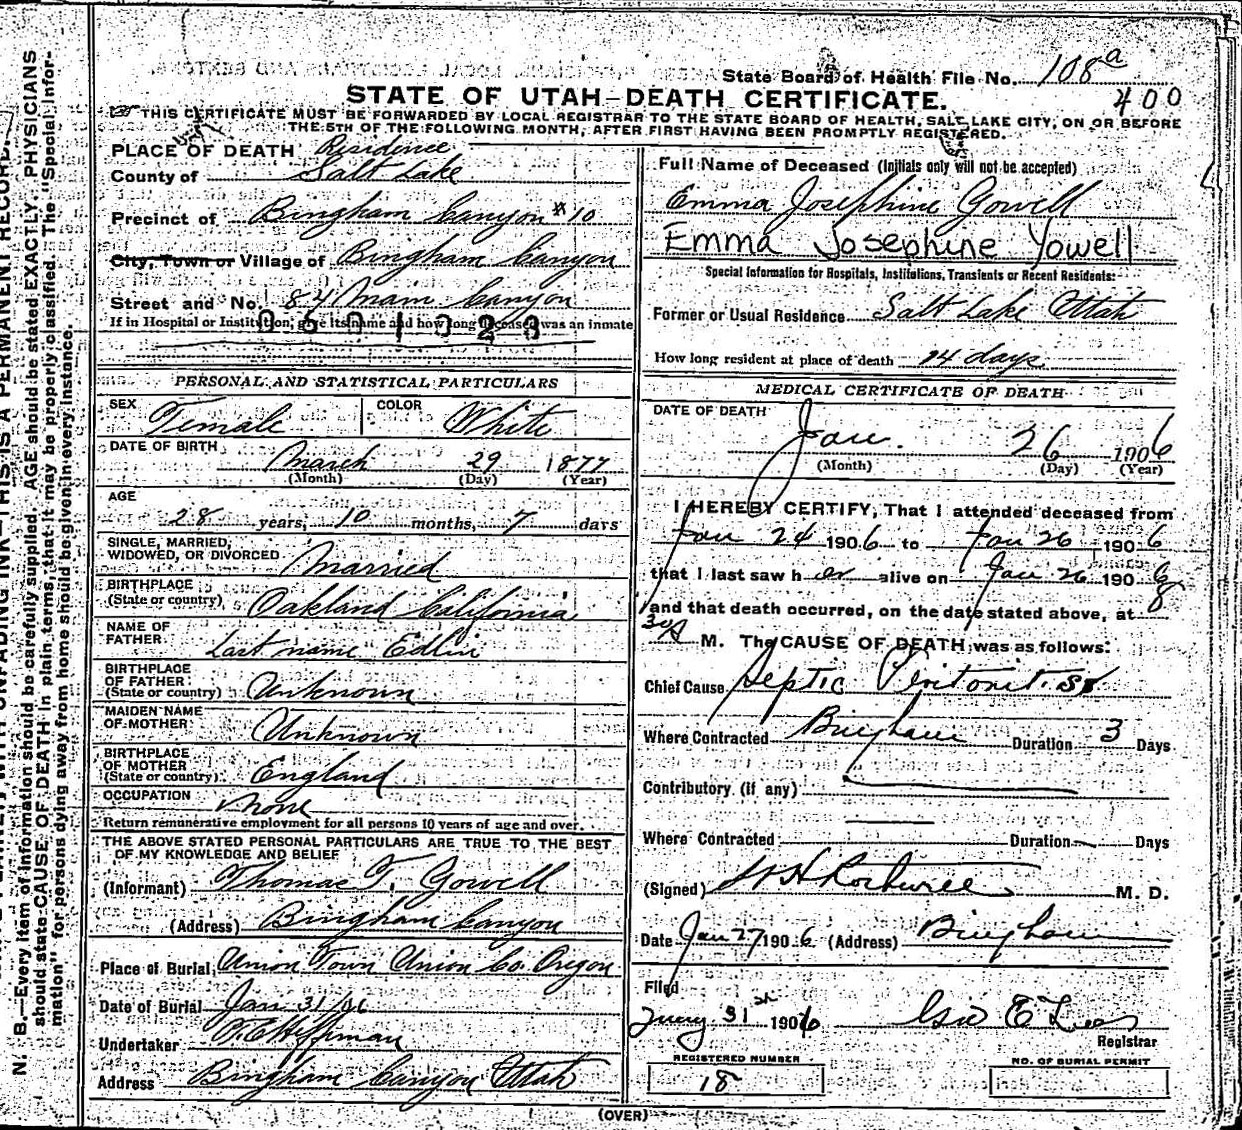 N. B.—Every item of information should be carefully supplied. AGE should be stated EXACTLY. PHYSICIANS
should state CAUSE OF DEATH in plain terms, that it may be properly classified. The "Special Infor-
mation" for persons dying away from home should be given in every instance.
State Board of Health File No. 108a
400
STATE OF UTAH—DEATH CERTIFICATE.
THIS CERTIFICATE MUST BE FORWARDED BY LOCAL REGISTRAR TO THE STATE BOARD OF HEALTH, SALT LAKE CITY, ON OR BEFORE
THE 5TH OF THE FOLLOWING MONTH, AFTER FIRST HAVING BEEN PROMPTLY REGISTERED.
PLACE OF DEATH Residence
County of Salt Lake
Precinct of Bingham Canyon # 10
City, Town or Village of Bingham Canyon
Street and No. 841 Main Canyon
If in Hospital or Institution, give its name and how long deceased was an inmate
0601328
PERSONAL AND STATISTICAL PARTICULARS
SEX Female COLOR White
DATE OF BIRTH March 29 1877
(Month) (Day) (Year)
AGE
28 years, 10 months, 7 days
SINGLE, MARRIED,
WIDOWED, OR DIVORCED Married
BIRTHPLACE
(State or country) Oakland California
NAME OF
FATHER Last name "Edlin
BIRTHPLACE
OF FATHER
(State or country) Unknown
MAIDEN NAME
OF MOTHER Unknown
BIRTHPLACE
OF MOTHER
(State or country) England
OCCUPATION None
Return remunerative employment for all persons 10 years of age and over.
THE ABOVE STATED PERSONAL PARTICULARS ARE TRUE TO THE BEST
OF MY KNOWLEDGE AND BELIEF
(Informant) Thomas T. Gowell
(Address) Bingham Canyon
Place of Burial Union Town Union Co. Oregon
Date of Burial Jan 31/06
Undertaker
Address Bingham Canyon Utah
Full Name of Deceased (Initials only will not be accepted)
Emma Josephine Gowell
Emma Josephine Yowell
Special Information for Hospitals, Institutions, Transients or Recent Residents:
Former or Usual Residence Salt Lake Utah
How long resident at place of death 14 days
MEDICAL CERTIFICATE OF DEATH
DATE OF DEATH
Jan. 26 1906
(Month) (Day) (Year)
I HEREBY CERTIFY, That I attended deceased from
Jan 24 1906 to Jan 26 1906
that I last saw her alive on Jan 26 1906
and that death occurred, on the date stated above, at 8
30 A M. The CAUSE OF DEATH was as follows:
Chief Cause Septic Peritonitis
Where Contracted Bingham Duration 3 Days
Contributory (if any)
Where Contracted Duration Days
(Signed) M. D.
Date Jan 27 1906 (Address) Bingham
Filed
31st 1906
Registrar
REGISTERED NUMBER
18
NO. OF BURIAL PERMIT
(OVER)